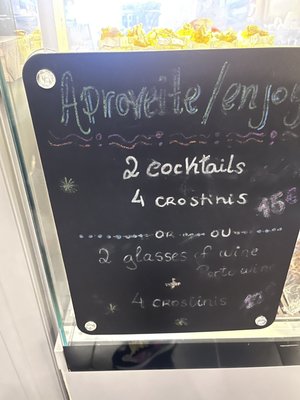 Aproveite/enjoy
2 cocktails
4 CROSTINIS 15€
OR OU
2 glasses of wine
Porto wine
4 CROSTINIS